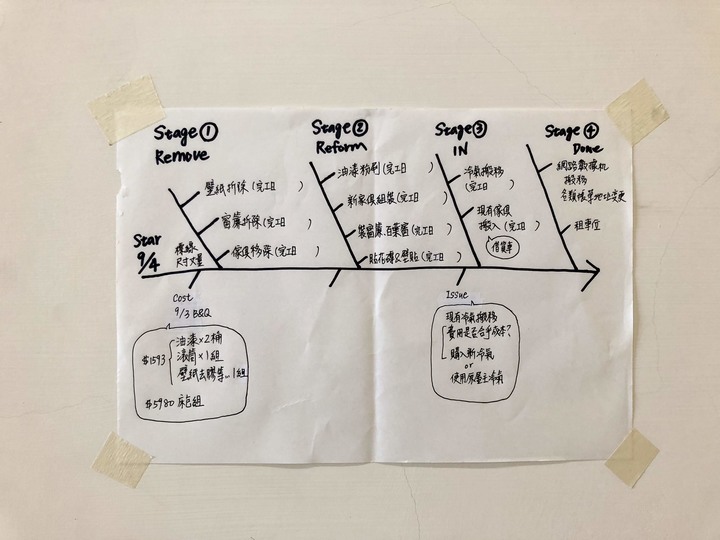 Stage ①
Remove
壁紙拆除 (完工日 )
窗簾拆除 (完工日 )
傢俱移除 (完工日 )
Star
9/4
尺寸丈量
Stage ②
Reform
油漆粉刷 (完工日 )
新傢俱組裝 (完工日 )
裝窗簾、百葉窗 (完工日 )
貼花磚&壁貼 (完工日 )
Stage ③
IN
冷氣搬移
(完工日 )
現有傢俱
搬入 (完工日 )
借貨車
Stage ④
Done
網路數據机
搬移
各類帳單地址變更
租車位
Cost
9/3 B&Q
$1593
油漆×2桶
滾筒×1組
壁紙去膠等...1組
$5980 床包組
Issue
現有冷氣搬移
費用是否合乎成本?
購入新冷氣
or
使用原屋主冷氣